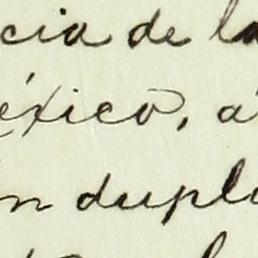 cia de la
éxico, á
n dupli